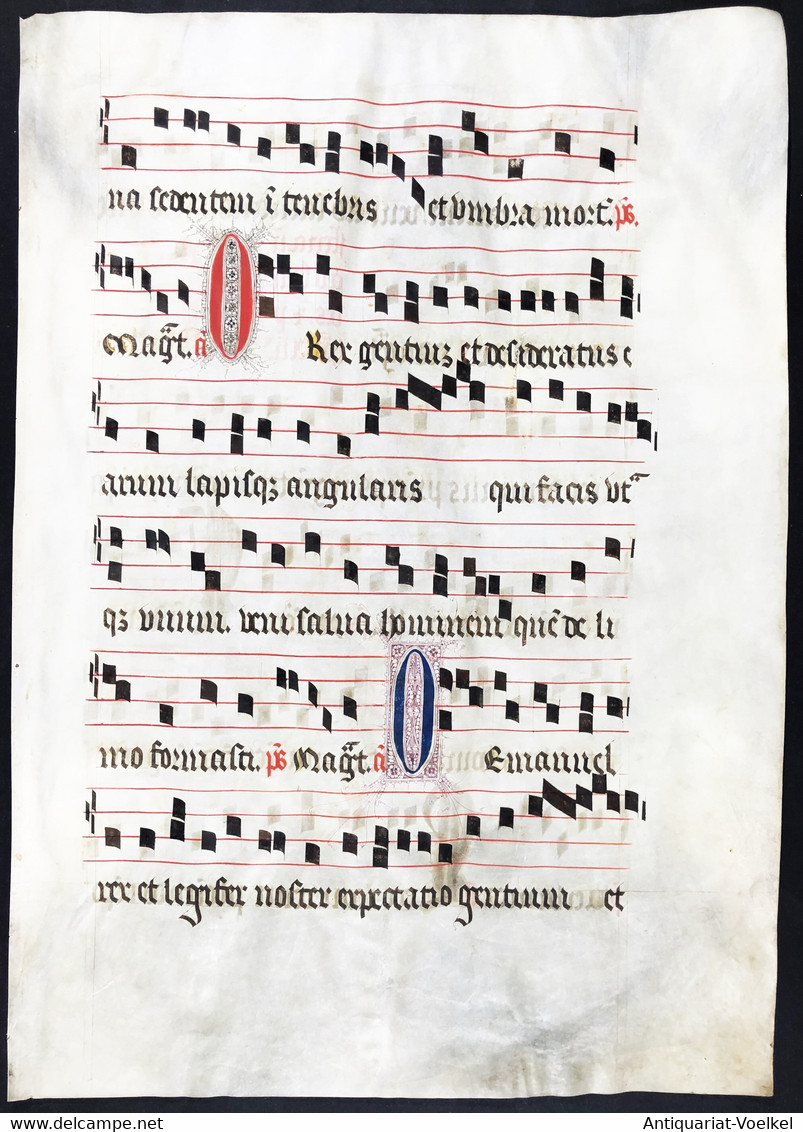 na sedentem ī tenebris et vmbra mort̄. p̄s.
Magt̄. ā O Rex gentiuȝ et desideratus e
arum lapisqȝ angularis qui facis vtᵃ
qȝ vnum. veni salua hominem quē de li
mo formasti. p̄s Magt̄. ā O Emanuel
rex et legifer noster expectatio gentium et
Antiquariat-Voelkel
www.delcampe.net